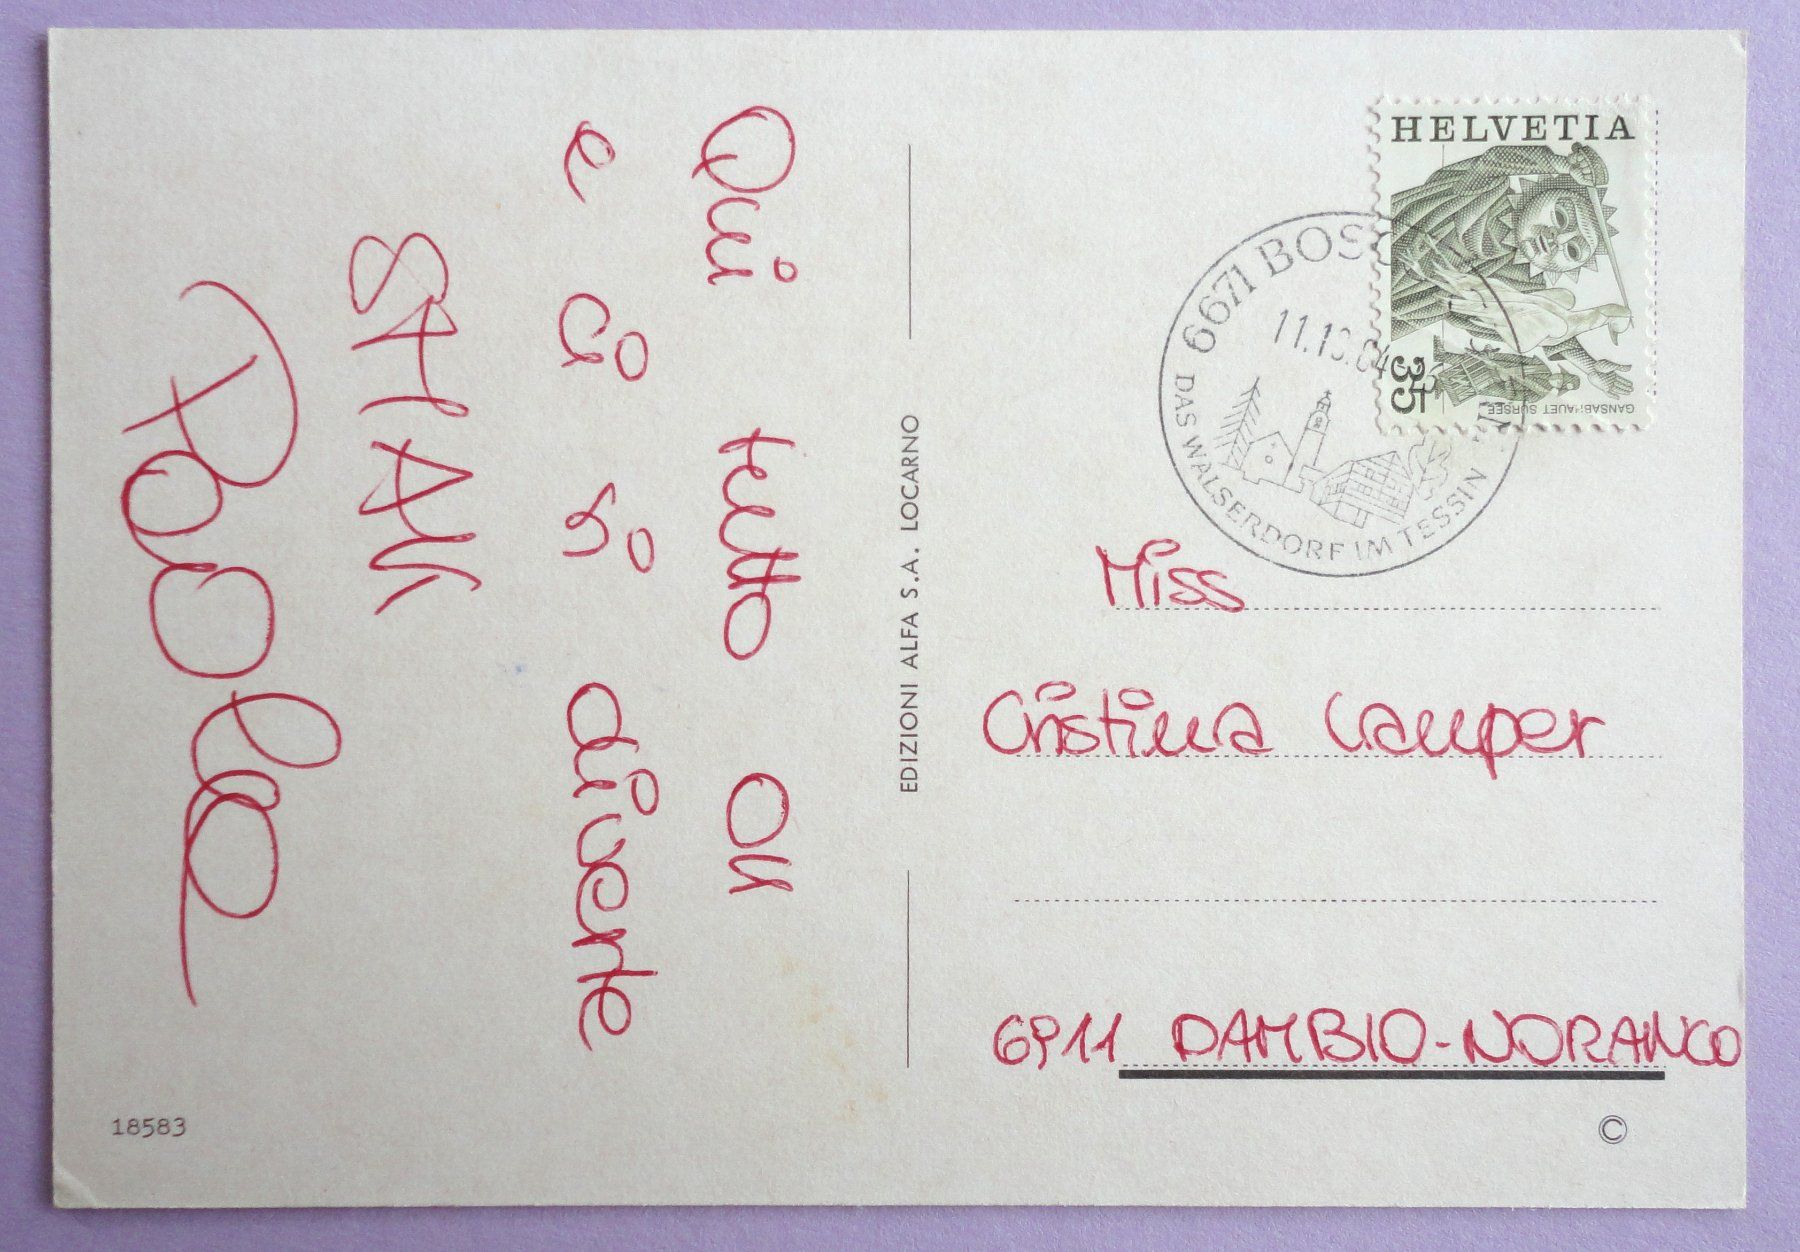 Qui tutto OK
e ci si diverte
CIAK
Paola
EDIZIONI ALFA S.A. LOCARNO
HELVETIA
35
GANSABHAUET SURSEE
6671 BOSCO
11.10.84
DAS WALSERDORF IM TESSIN
Miss
Cristina Camper
6911 DAMBIO-NORANCO
18583
©